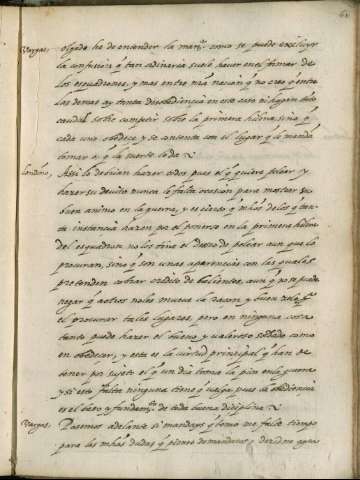 Vargas, olgado he de entender la man.ª como se puede escusar
la confusion q̃ tan ordinaria suele haver en el formar de
los esquadrones, y mas entre nr̃a nacion q̃ no creo q̃ entre
las demas ay tanta desobediencia en este caso ni hagan tanto
caudal sobre competir sobre la primera hilera, sino q̃
cada uno obedece y se contenta con el lugar q̃ le manda
tomar o q̃ la suerte le da
Londoño, Assi lo devrian hazer todos pues el q̃ quiere pelear y
hazer su devito nunca le falta ocasion para mostrar su
buen animo en la guerra, y es cierto q̃ m̃hos de los q̃ tan-
ta instancia hazen por el ponerse en la primera hilera
del esquadron no los tira el desseo de pelear aun que lo
procuran, sino q̃ son unas aparencias con las quales
pretenden cobrar credito de valientes, aun q̃ no se puede
negar q̃ a otros no les mueva la razon y buen zelo
el procurar tales lugares, pero en ninguna cosa
tanto puede hazer el bueno y valeroso soldado como
en obedecer, y esta es la virtud principal q̃ han de
tener por sujeto el q̃ un dia toma la pica en la guerra
y si esto falta ninguna tiene q̃ valga, pues la obediencia
es el vaso y fundam.to de toda buena disciplina
Vargas, Passemos adelante si mandays q̃ como me falte tiempo
para las m̃has dudas q̃ pienso demandaros y dezidme agora